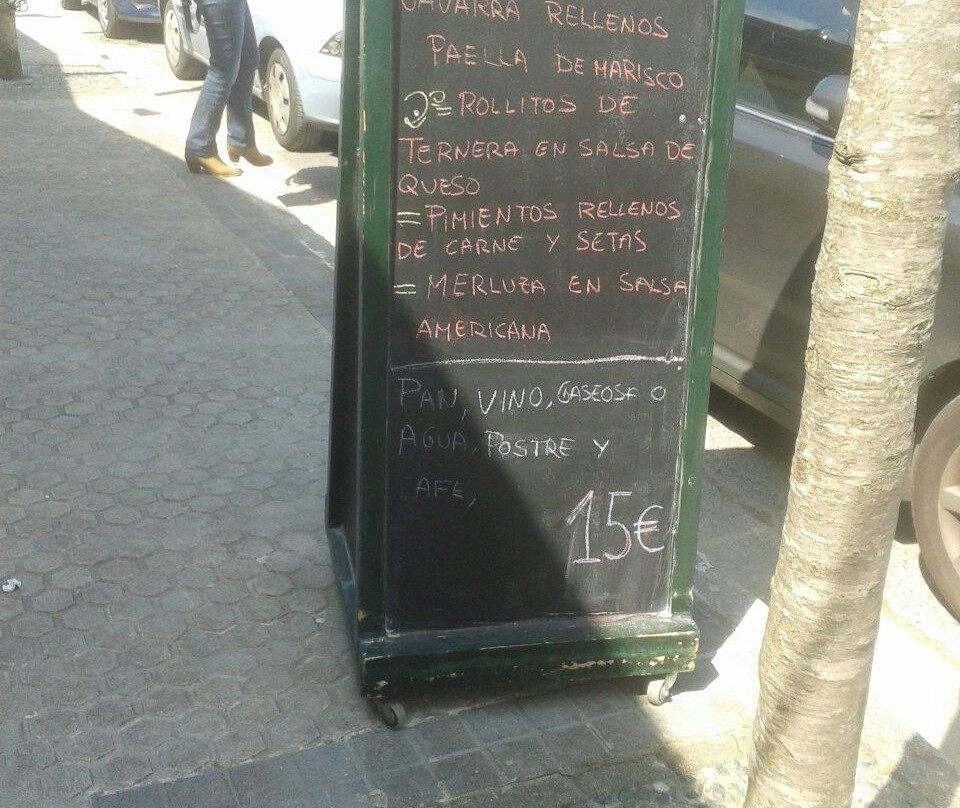 NAVARRA RELLENOS
PAELLA DE MARISCO
2º= ROLLITOS DE
TERNERA EN SALSA DE
QUESO
= PIMIENTOS RELLENOS
DE CARNE Y SETAS
= MERLUZA EN SALSA
AMERICANA
PAN, VINO, GASEOSA O
AGUA, POSTRE Y
CAFE,
15€